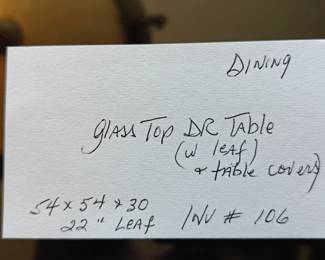 DINING
Glass Top DR Table
(w leaf)
+ table covers)
54 x 54 x 30
22" LEAf INV # 106